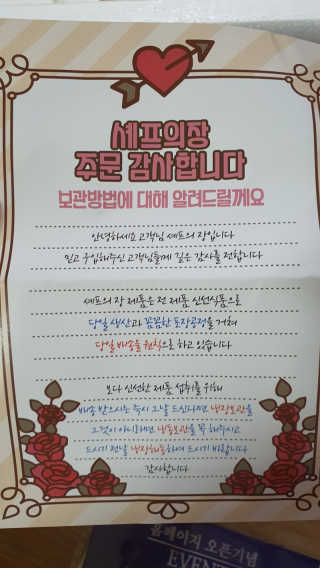 셰프의장
주문 감사합니다
보관방법에 대해 알려드릴게요
안녕하세요 고객님 셰프의 장입니다
믿고 구입해주신 고객님들께 깊은 감사를 전합니다
셰프의 장 제품은 전 제품 신선식품으로
당일 생산과 꼼꼼한 포장공정을 거쳐
당일 배송을 원칙으로 하고 있습니다
보다 신선한 제품 섭취를 위해
배송 받으시는 즉시 그날 드신다면 냉장보관을
그것이 아니라면 냉동보관을 꼭 해주시고
드시기 전날 냉장해동하여 드시기 바랍니다
감사합니다
홈페이지 오픈기념
EVENT